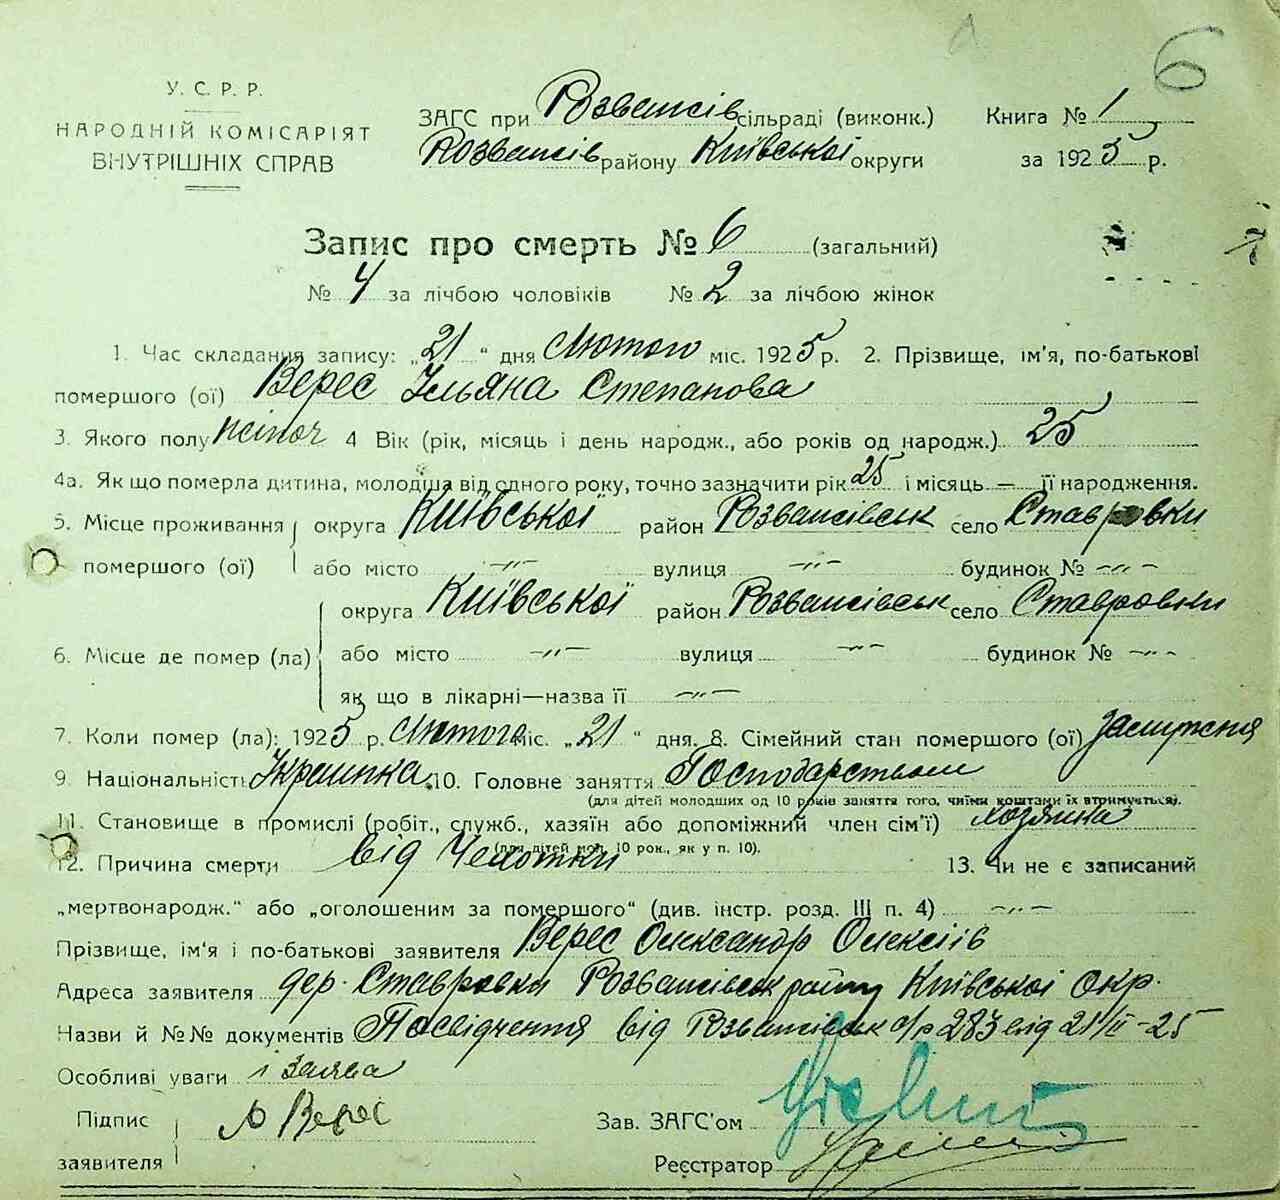 6
У. С. Р. Р.
НАРОДНІЙ КОМІСАРІЯТ
ВНУТРІШНІХ СПРАВ
ЗАГС при Розважів сільраді (виконк.)
Розважів району Київської округи
Книга № 1
за 1925 р.
Запис про смерть № 6 (загальний)
№ 4 за лічбою чоловіків № 2 за лічбою жінок
1. Час складання запису: „21“ дня Лютого міс. 1925 р. 2. Прізвище, ім'я, по-батькові
помершого (ої) Верес Ульяна Степанова
3. Якого полу жіноч 4 Вік (рік, місяць і день народж., або років од народж.) 25
4а. Як що померла дитина, молодша від одного року, точно зазначити рік 25 і місяць — її народження.
5. Місце проживання округа Київської район Розважівськ село Ставровки
помершого (ої) або місто -„- вулиця -„- будинок № -„-
округа Київської район Розважівськ село Ставровки
6. Місце де помер (ла) або місто -„- вулиця -„- будинок № -„-
як що в лікарні—назва її -„-
7. Коли помер (ла): 1925 р. Лютого міс. „21“ дня. 8. Сімейний стан помершого (ої) Замужня
9. Національність Українка 10. Головне заняття Господарством
(для дітей молодших од 10 років заняття того, чиїми коштами їх втримується).
11. Становище в промислі (робіт., служб., хазяїн або допоміжний член сім'ї) хозяйка
(для дітей мол. 10 рок., як у п. 10).
12. Причина смерти від Чехотки 13. Чи не є записаний
„мертвонародж.“ або „оголошеним за помершого“ (див. інстр. розд. III п. 4) -„-
Прізвище, ім'я і по-батькові заявителя Верес Олександр Олексіїв
Адреса заявителя дер. Ставровки Розважівськ району Київської Окр.
Назви й №№ документів Посвідчення від Розважівськ с/р 283 від 21/II-25
Особливі уваги і Заява
Підпис
заявителя О Верес
Зав. ЗАГС'ом
Реєстратор